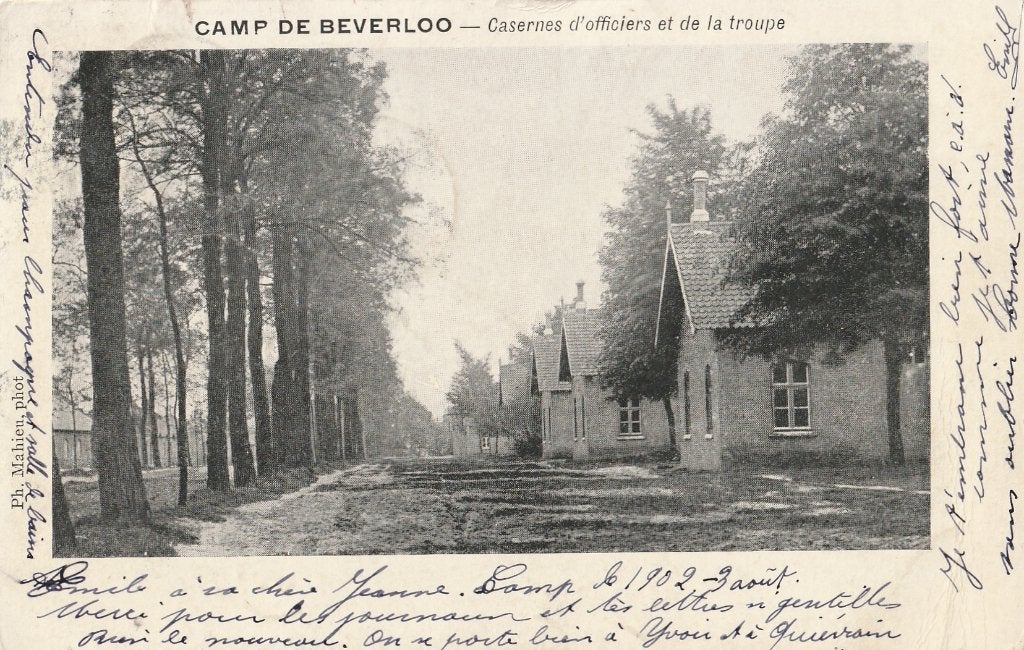 CAMP DE BEVERLOO — Casernes d'officiers et de la troupe
Ph. Mahieu, phot
Emile à sa chère Jeanne. Camp le 1902 - 3 août.
Merci pour les journaux et tes lettres si gentilles
Rien de nouveau. On se porte bien à Yvoir et à Quiévrain
Entendu pour Champagne et salle de bains
Je t'embrasse bien fort, c.à.d.
comme je t'aime
sans oublier bonne Maman. Emile